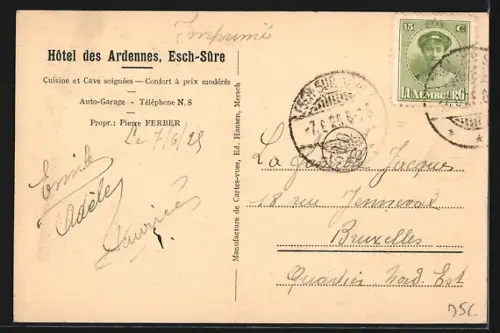 Imprimé
Hôtel des Ardennes, Esch-Sûre
Cuisine et Cave soignées — Confort à prix modérés
Auto-Garage - Téléphone N. 8
Propr.: Pierre FERBER
Le 7/6/25
Emile
Adèle
Maurice
Manufacture de Cartes-vues, Ed. Hansen, Mersch
15 C
LUXEMBOURG
ESCH-SUR-
Jacques
18 rue Jenneval
Bruxelles
Quartier Nord. Est